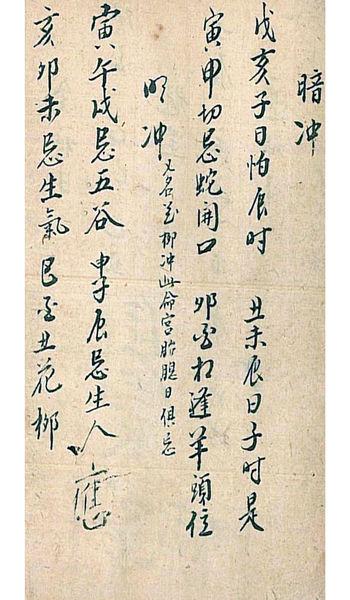 暗冲
戊亥子日怕辰时 丑未辰日子时是
寅申切忌蛇開口 卯酉相逢羊頭位
明冲 又名花柳冲此命宫胎腿日俱忌
寅午戌忌五谷 申子辰忌生人
亥卯未忌生氣 巳酉丑花柳